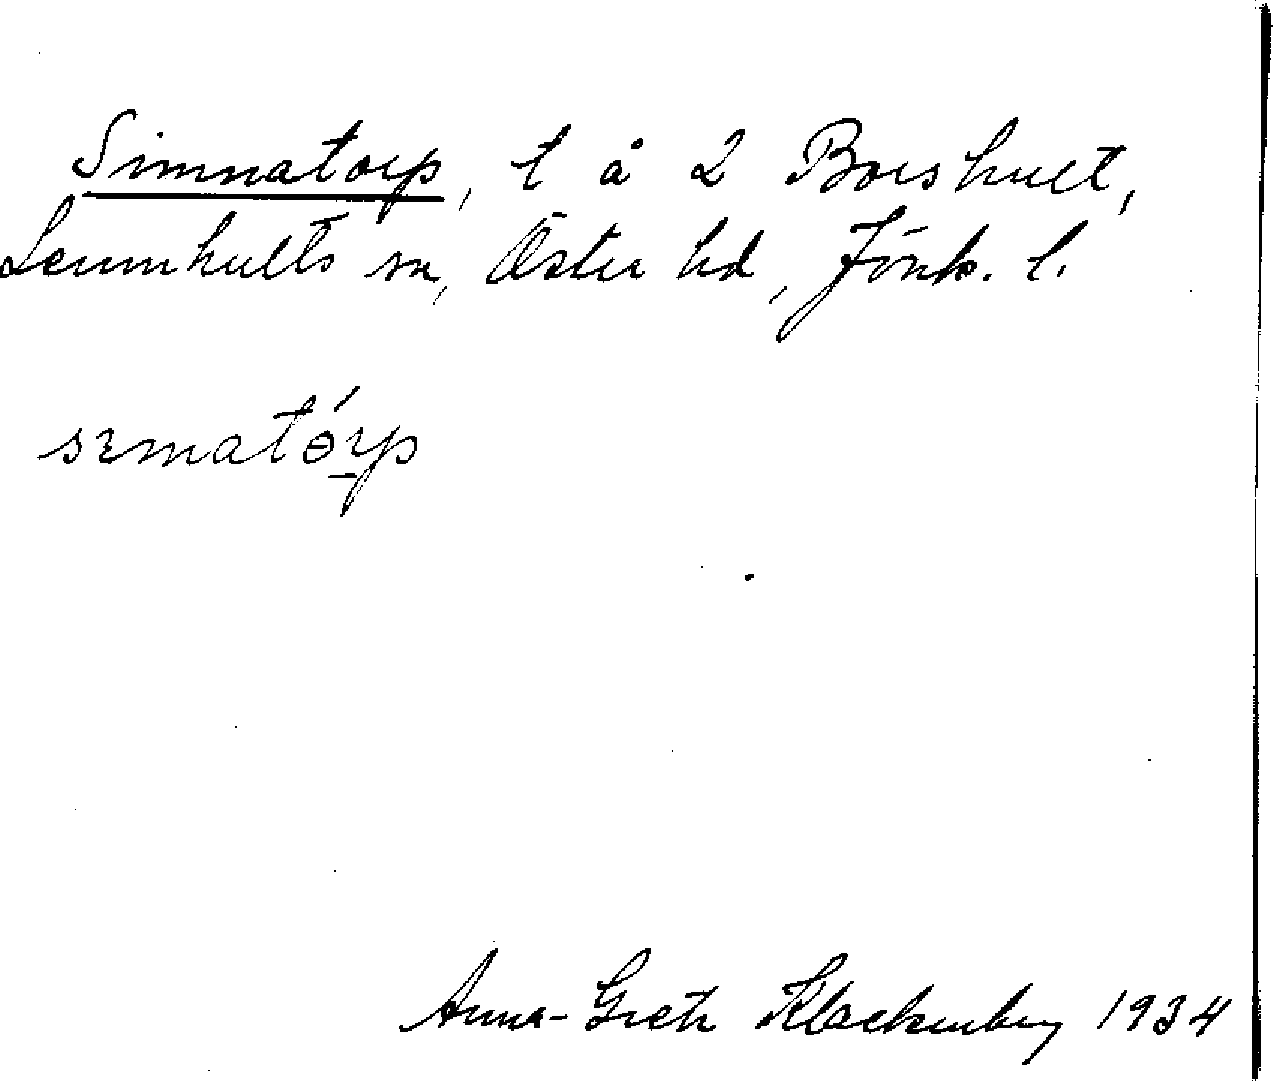 Simnatorp, t å 2 Borshult,
Lemnhults sn, Östra hd, Jönk. l.
sımatɵ́rp
Anna-Greta Klackenberg 1934